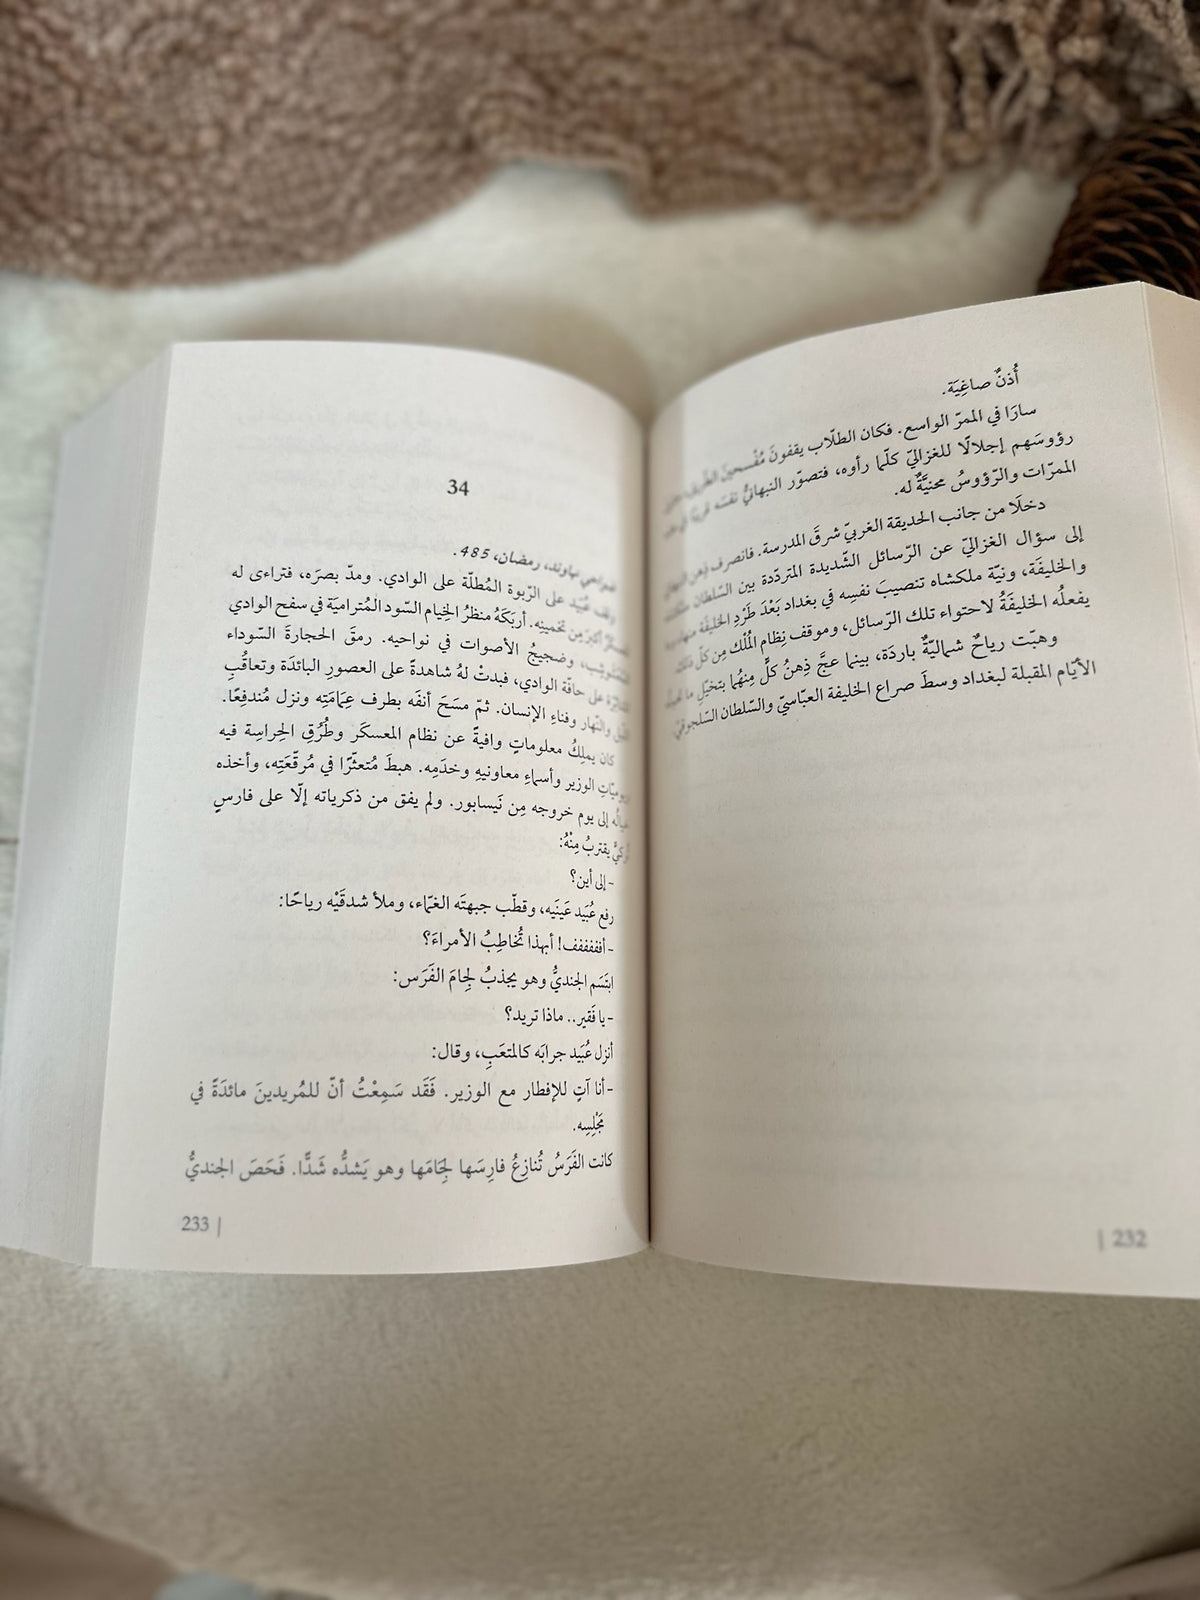 أُذنٌ صاغِيَة.
سارَا في الممرّ الواسع. فكان الطلّاب يقفونَ مُفْسِحينَ
رؤوسَهم إجلالًا للغزاليّ كلّما رأوه، فتصوّر النبهانيُّ نفسَه
الممرّات والرّؤوسُ محنيَّةٌ له.
دخلَا من جانب الحديقة الغربيّ شرقَ المدرسة. فانصرف ذِهن
إلى سؤال الغزاليّ عن الرّسائل الشّديدة المتردّدة بين السّلطان
والخليفَة، ونيّة ملكشاه تنصيبَ نفسِه في بغداد بَعْدَ طَرْدِ الخليفَة
يفعلُه الخليفَةُ لاحتواء تلك الرّسائل، وموقف نِظام المُلْك مِن كلّ ذلك
وهبّت رياحٌ شماليّةٌ باردَة، بينما عجَّ ذِهنُ كلٍّ مِنهُما بتخيّلِ ما
الأيّام المقبلة لبغداد وسطَ صراع الخليفة العبّاسيّ والسّلطان السّلجوقيّ.
| 232
34
نهاوند، رمضان، 485.
عُبَيد على الرّبوة المُطلّة على الوادي. ومدّ بصرَه، فتراءى له
أكبرَ مِن تخمينِه. أربَكَهُ منظرُ الخِيام السّود المُتراميَة في سفح الوادي
وضجيجُ الأصوات في نواحيه. رمقَ الحجارةَ السّوداء
على حافّة الوادي، فبدتْ لهُ شاهدةً على العصورِ البائدَة وتعاقُبِ
والنّهار وفناءِ الإنسان. ثمّ مسَحَ أنفَه بطرف عِمَامَتِه ونزل مُندفِعًا.
كان يملِكُ معلوماتٍ وافيةً عن نظام المعسكَر وطُرُقِ الحِراسِة فيه
ويوميّاتِ الوزير وأسماءِ معاونيهِ وخدَمِه. هبطَ مُتعثّرًا في مُرقّعَتِه، وأخذه
خيالُه إلى يوم خروجه مِن نَيسابور. ولم يفق من ذكرياته إلّا على فارسٍ
تُركيٍّ يقتربُ مِنْهُ:
- إلى أين؟
رفع عُبَيد عَينَيه، وقطّب جبهتَه الغمّاء، وملأ شدقَيْه رياحًا:
- أففففف! أبهذا تُخاطِبُ الأمراءَ؟
ابتَسَم الجنديُّ وهو يجذبُ لِجامَ الفَرَس:
- يا فَقير.. ماذا تريد؟
أنزل عُبَيد جرابَه كالمتعَبِ، وقال:
- أنا آتٍ للإفطار مع الوزير. فَقَد سَمِعْتُ أنّ للمُريدينَ مائدَةً في
مَجْلِسِه.
كانت الفَرَسُ تُنازِعُ فارِسَها لِجَامَها وهو يَشدُّه شَدًّا. فَحَصَ الجنديُّ
233 |